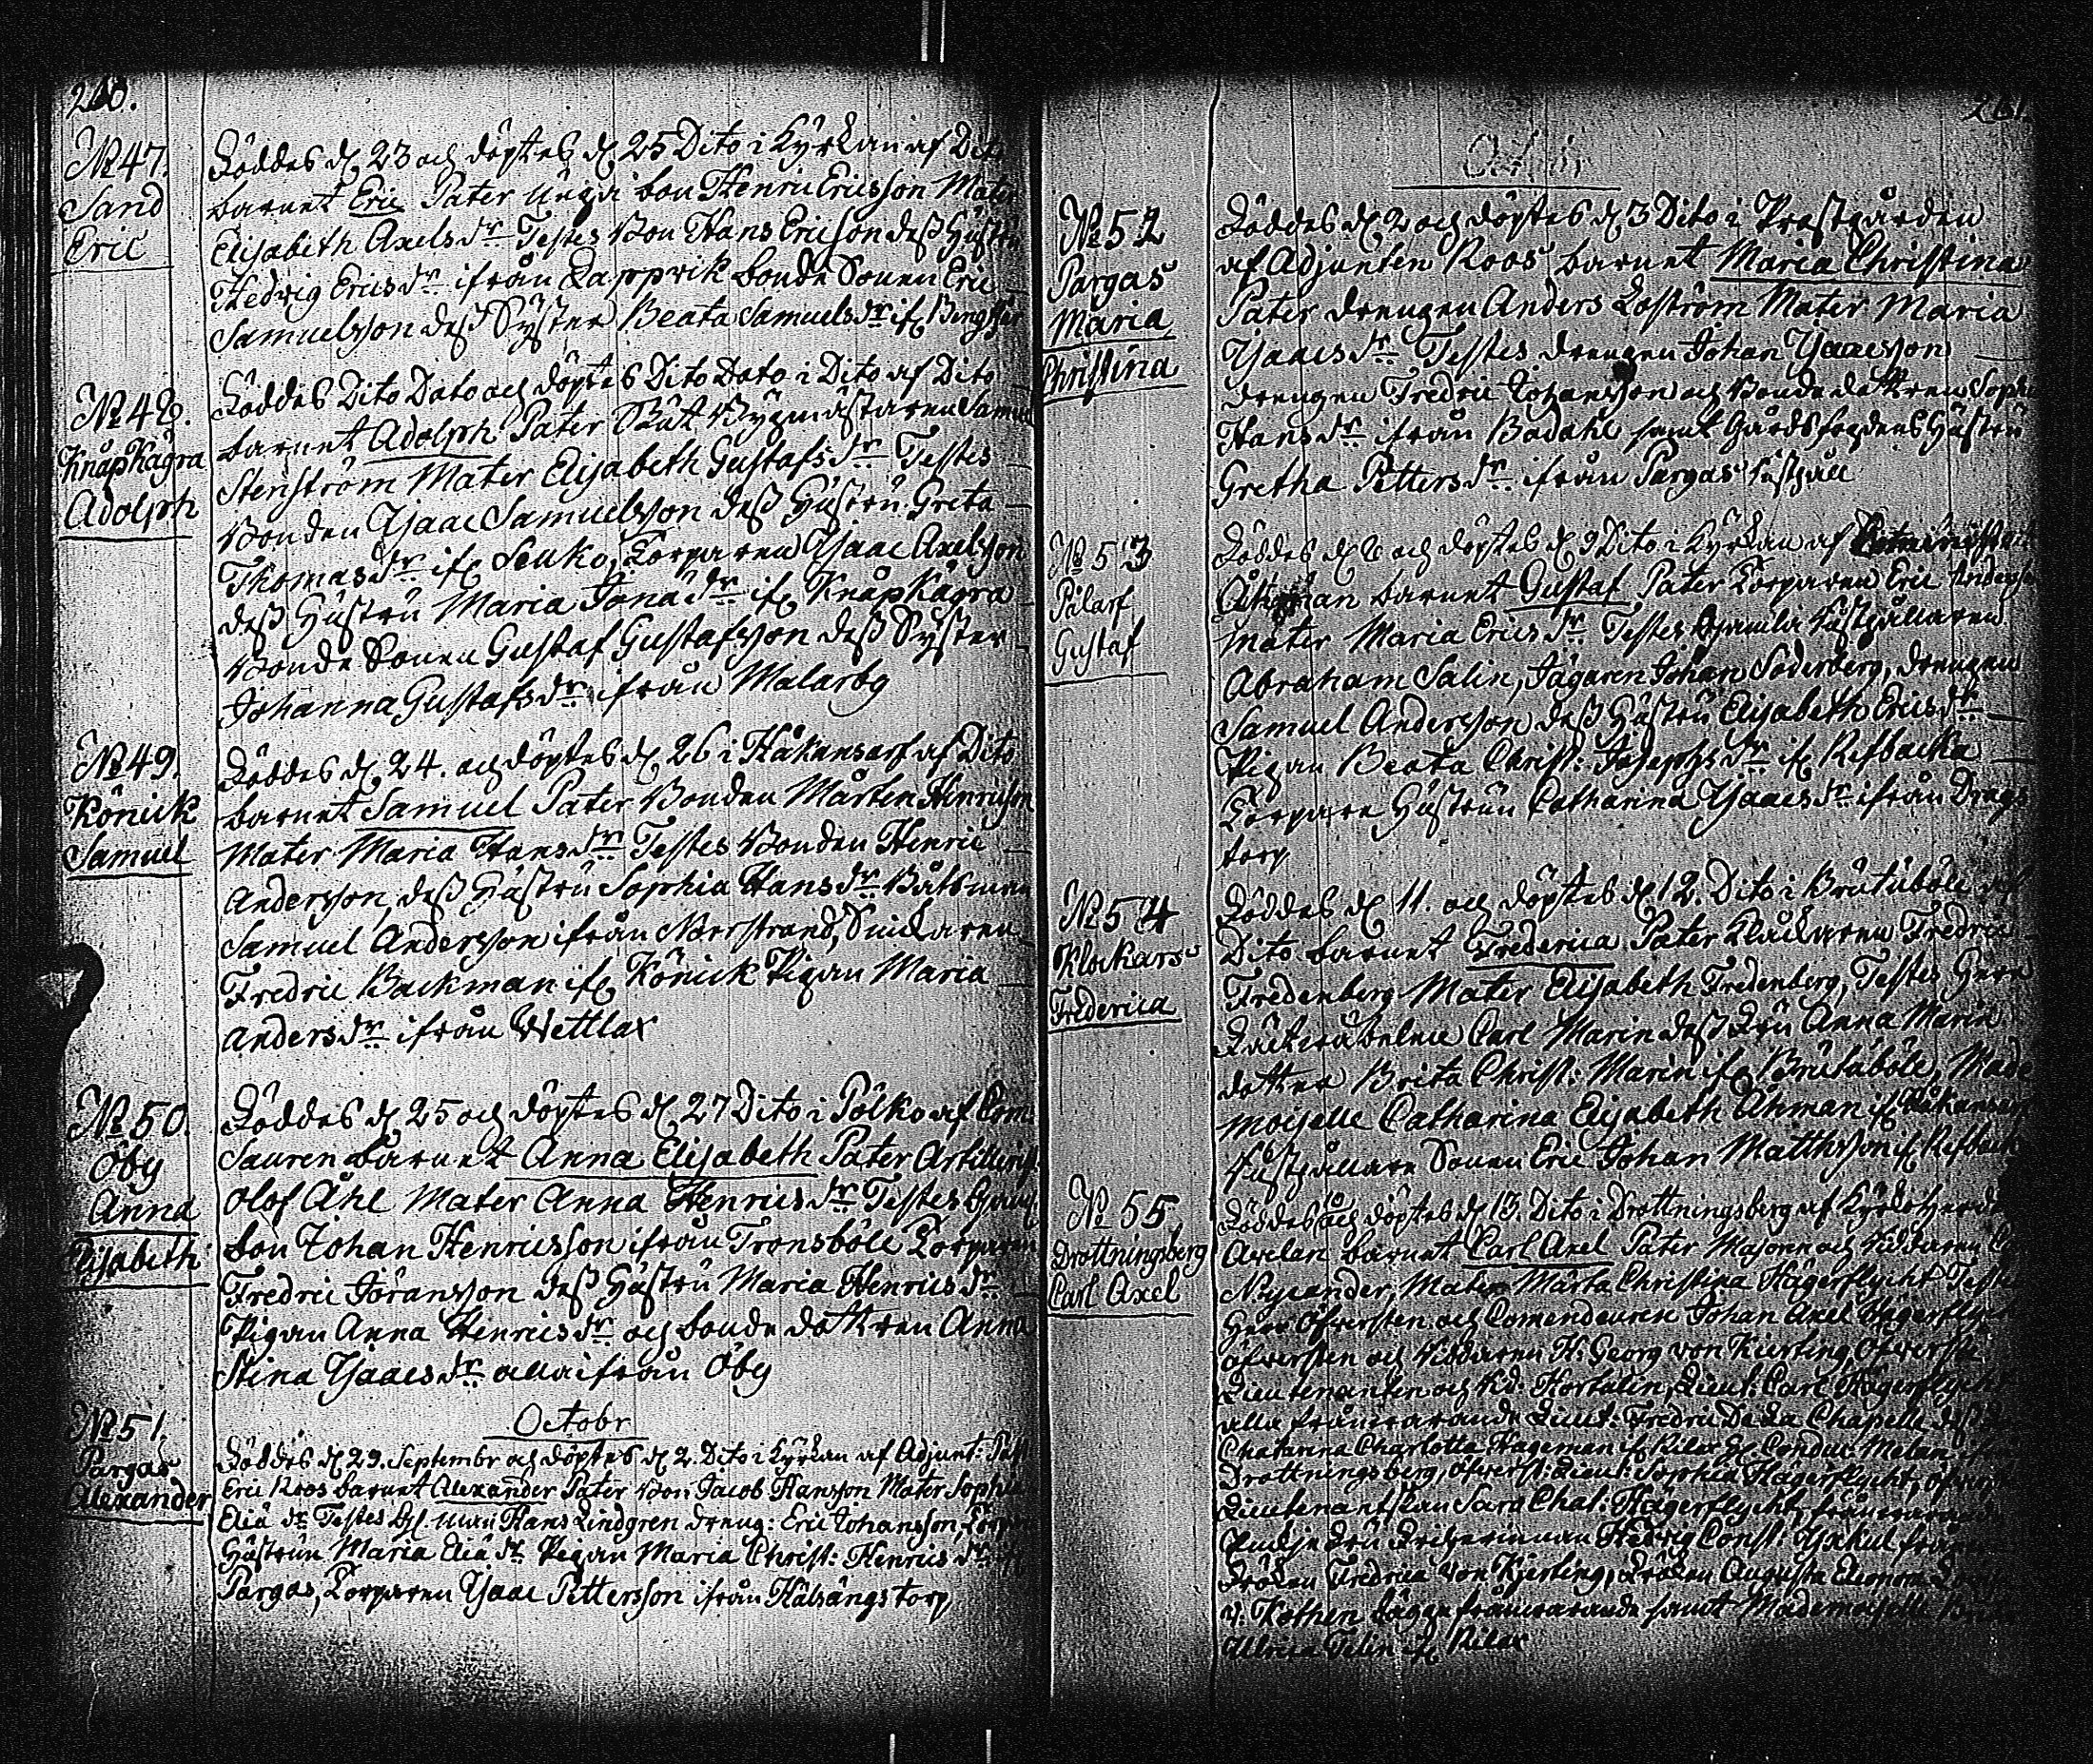 260.
No 47.
Sand
Eric
Föddes d. 23 och döptes d. 25 Dito i Kyrkan af Dito
barnet Eric Pater unga bon Henric Ericsson Mater
Elisabeth Axels dr Testes Bon Hans Ericson dess Hustru
Hedvig Erics dr ifrån Lappvik bonde Sonen Eric
Samuelsson dess Syster Beata Samuels dr if.
No 48.
Knåpkägra
Adolph
Föddes Dito Dato och döptes Dito Dato i Dito af Dito
barnet Adolph Pater Båt Bygmästaren Samuel
Stenström Mater Elisabeth Gustafs dr Testes
Bonden Isaac Samuelsson dess Hustru Greta
Thomas dr if. Lenko, Torparen Isaac Axelsson
dess Hustru Maria Jona dr if. Knåpkägra
Bonde Sonen Gustaf Gustafsson dess Syster
Johanna Gustafs dr ifrån Malarby
No 49.
Könick
Samuel
Föddes d. 24. och döptes d. 26 i Håkansarf af Dito
barnet Samuel Pater Bonden Mårten Henricsson
Mater Maria Hans dr Testes Bonden Henric
Andersson, dess Hustru Sophia Hans dr Båtsman
Samuel Andersson ifrån Norrstrand, Snickaren
Fredric Backman if. Könick Pigan Maria
Anders dr ifrån Wettlax
No 50.
Öby
Anna
Elisabeth
Föddes d. 25 och döptes d. 27 Dito i Pölko af Com.
Sauren barnet Anna Elisabeth Pater Artillerist
Olof Åhl Mater Anna Henrics dr Testes
bon Johan Henricsson ifrån Tronsböle Torparen
Fredric Jöransson dess Hustru Maria Henrics dr
Pigan Anna Henrics dr och bonde dottren Anna
Stina Isaacs dr alla ifrån Öby
Octobr
No 51.
Pargas
Alexander
Föddes d. 29. Septembr och döptes d. 2. Dito i Kyrkan af Adjunt: Past
Eric Roos barnet Alexander Pater bon Jacob Hansson Mater Sophia
Eliæ dr Testes Hans Lindgren dreng: Eric Johansson, Torpare
Hustrun Maria Eliæ dr Pigan Maria Christ: Henrics dr if
Pargas, Torparen Isaac Pettersson ifrån Hälsängs torp
261.
No 52
Pargas
Maria
Christina
Föddes d. 2 och döptes d. 3 Dito i Prestgården
af Adjunten Roos barnet Maria Christina
Pater drengen Anders Loström Mater Maria
Isaacs dr Testes drengen Johan Isaacsson
drengen Fredric Johansson och Bonde dottren Sophia
Hans dr ifrån Bodahl samt Gårdsfogdens Hustru
Gretha Petters dr ifrån Pargas
No 53
Pålarf
Gustaf
Föddes d. 8 och döptes d. 9 Dito i Kyrkan af
Åhman barnet Gustaf Pater Torparen Eric Andersson
Mater Maria Erics dr Testes Gamla
Abraham Salin, Jägaren Johan Soderberg, drengen
Samuel Andersson dess Hustru Elisabeth Erics dr
Pigan Beata Christ: Josephs dr if. Refbacka
Torpare Hustrun Catharina Isaacs dr ifrån Drags
torp
No 54
Klockars
Frederica
Föddes d. 11. och döptes d. 12. Dito i Brutuböle af
Dito barnet Frederica Pater Klåckaren Fredric
Fredenberg Mater Elisabeth Fredenberg, Testes Herr
Carl Marin dess Fru Anna Marin
dotter Brita Christ: Marin if. Brutuböle, Made
moiselle Catharina Elisabeth Åhman if. Håkansarf
Sonen Eric Johan Matthsson if. Refbacka
No 55
Drottningsberg
Carl Axel
Föddes och döptes d. 13. Dito i Drottningsberg af Kyrkoherde
barnet Carl Axel Pater Majoren och Riddaren
Nycander, Mater Märta Christina Hägerflycht Testes
Herr Öfversten och Comendeuren Johan Axel Hägerflycht
Öfversten och Riddaren H: Georg von Kierting, Öfverste
Lieutenanten och Rid: Hortalin, Lieut: Carl Hägerflycht
alla frånvarande Lieut: Fredric De La Chapelle, dess
Charlotta Hageman if. Rilax
Drottningsberg, Öfverst: Lieut: Sophia Hägerflycht, Öfverst
Lieutenantskan Sara Chal: Hägerflycht, frånvarande
Hedvig Const:
Fröken Fredrica von Kierting, Fröken Augusta Eleonora
v: Köthen bägge frånvarande samt Mademoiselle
Ulrica Telin if. Rilax